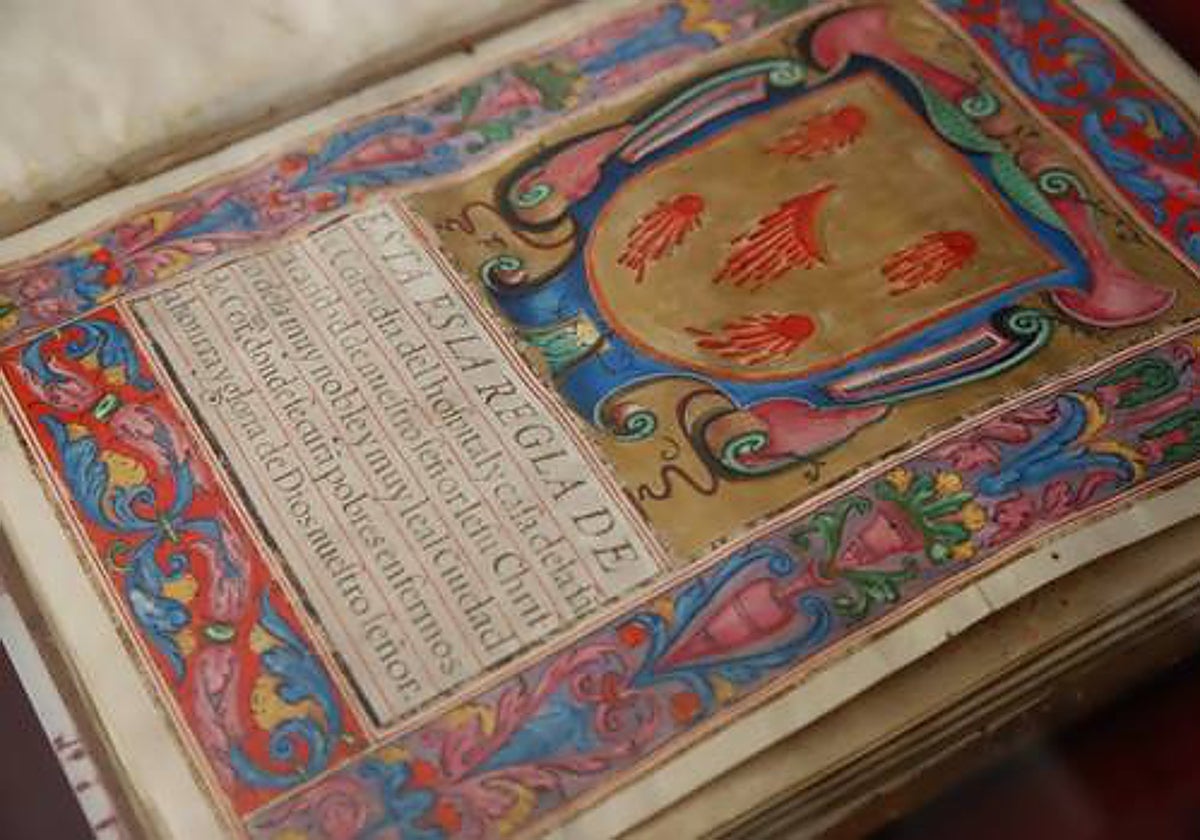 ESTA ES LA REGLA DE
Cofradia del hospital y casa de la
caridad de nuestro señor Iesu Chris
de la muy noble y muy leal Ciudad
de Cordoua donde se curã pobres enfermos
A honrra y gloria de Dios nuestro señor.